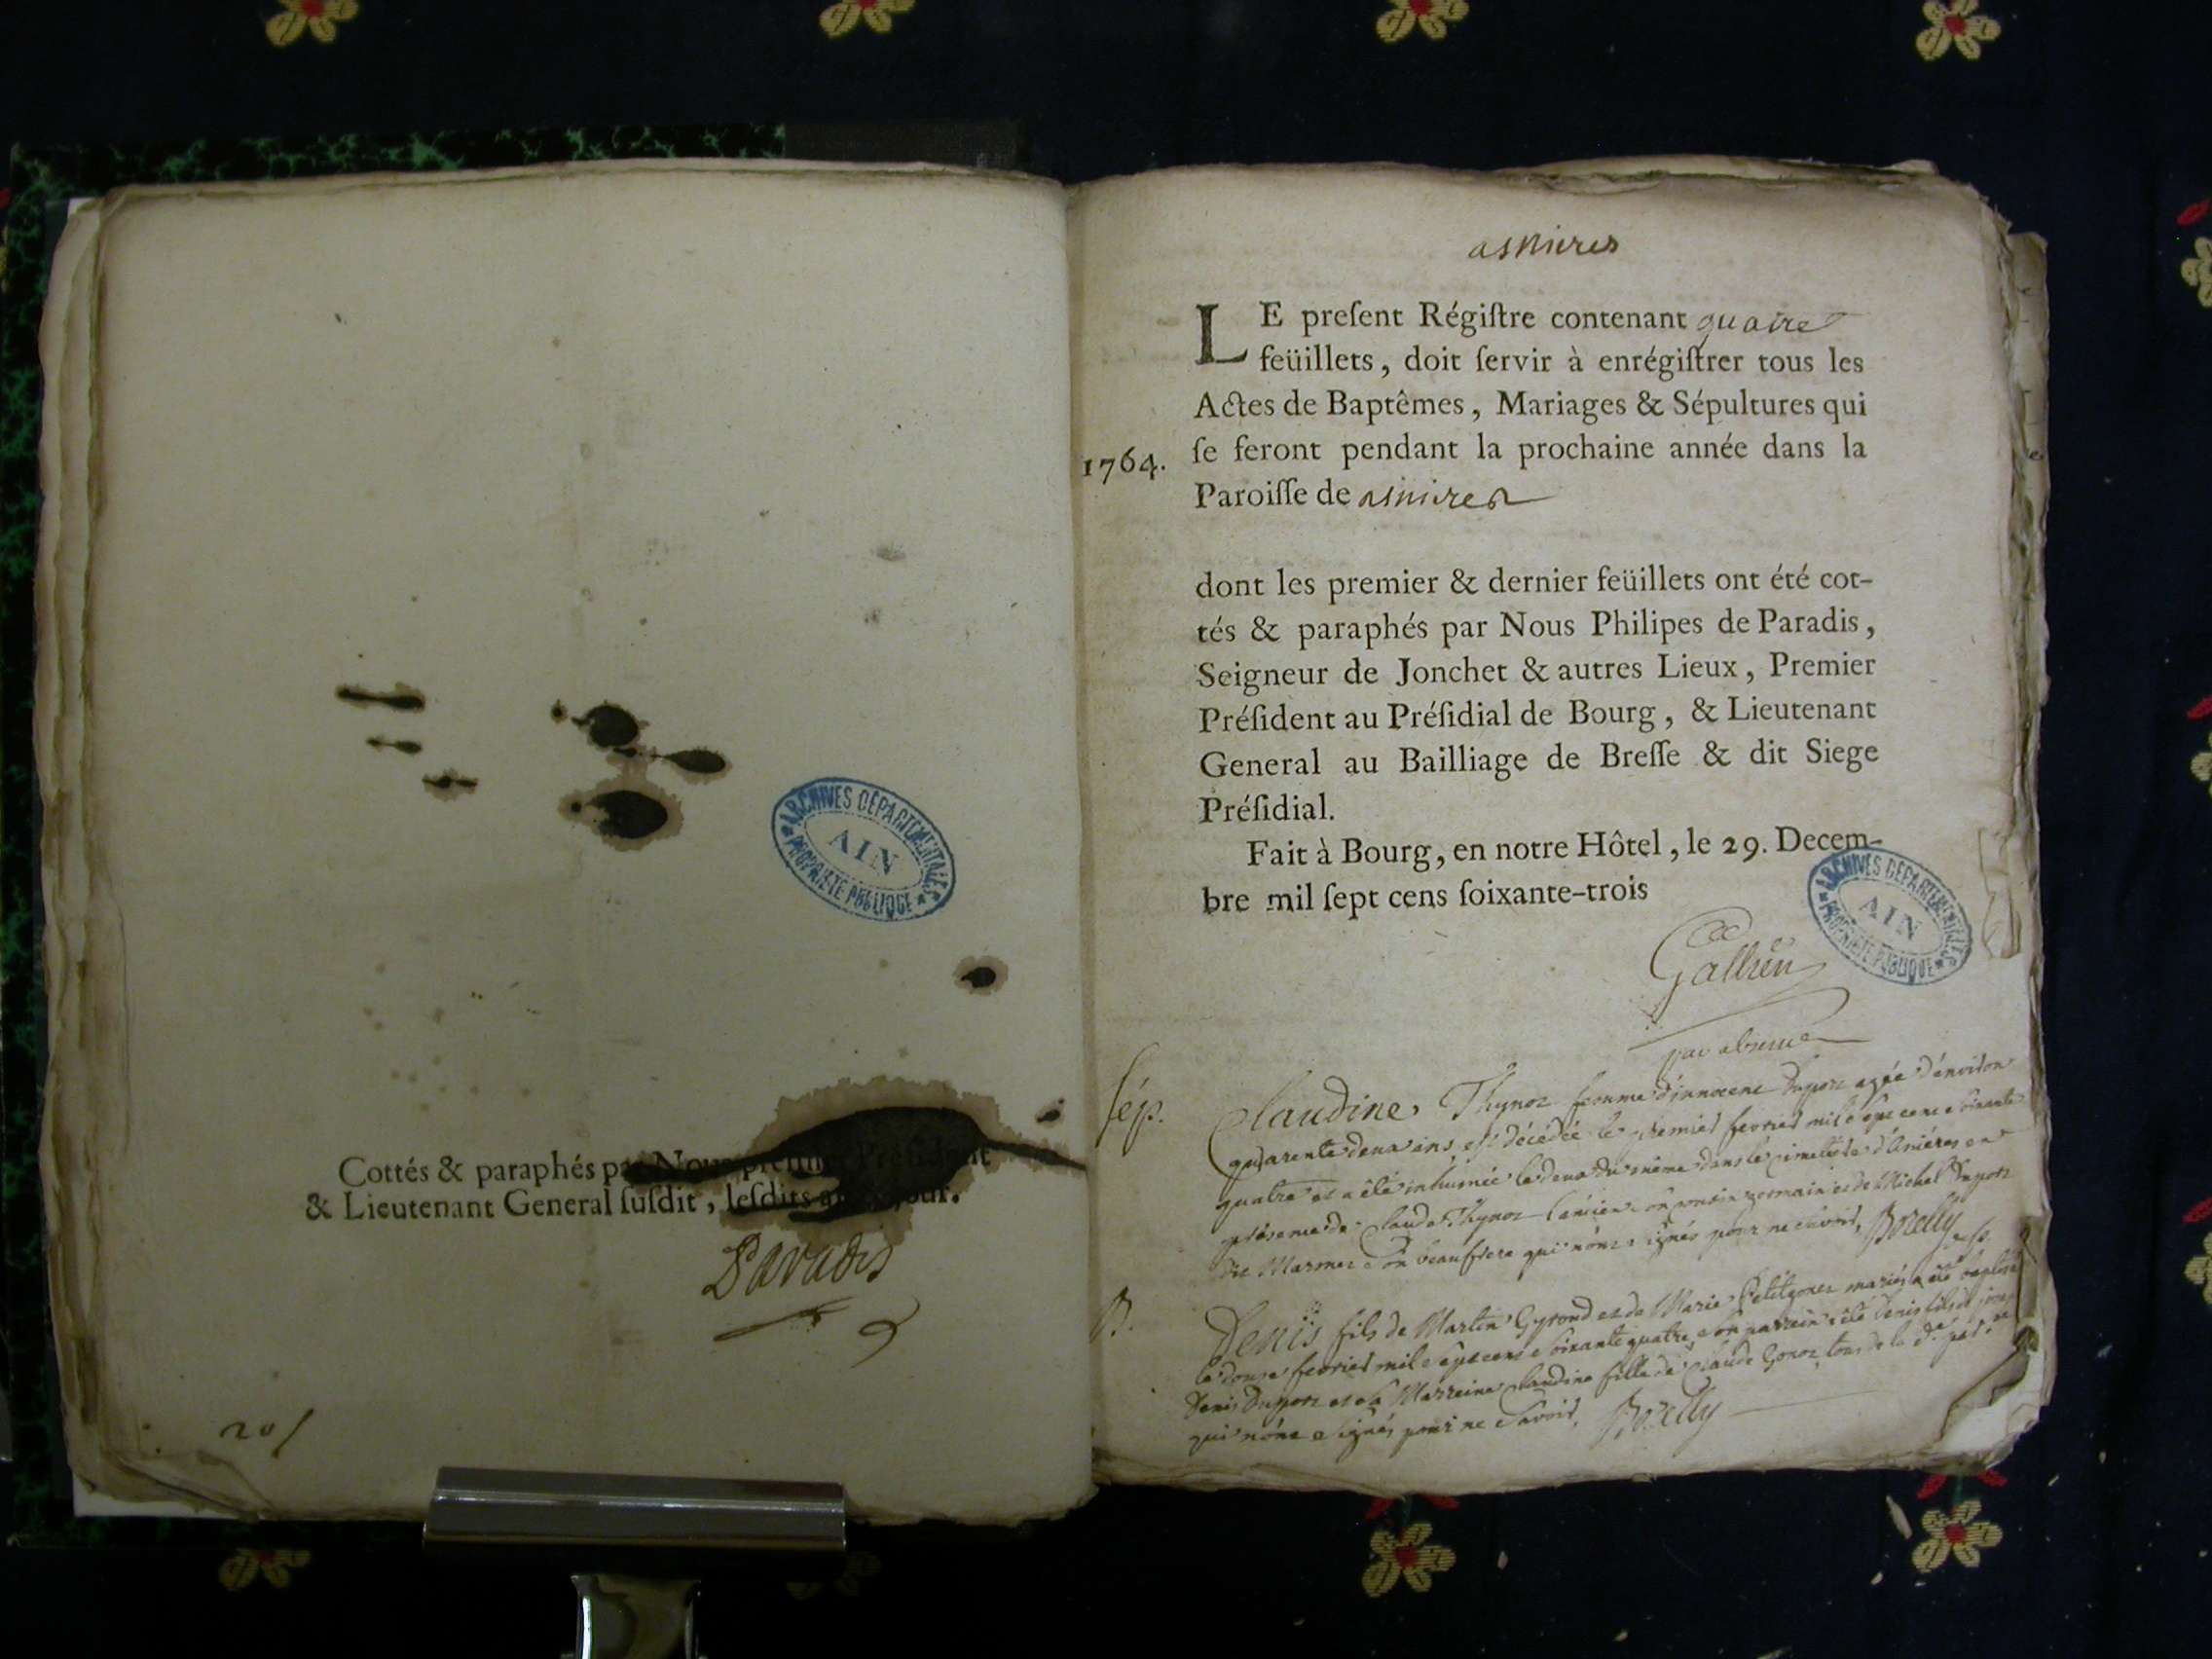 Cottés & paraphés par Nous premier Président
& Lieutenant General ſuſdit, leſdits an & jour.
Paradis
201
ARCHIVES DÉPARTEMENTALES
AIN
PROPRIÉTÉ PUBLIQUE
asnieres
LE preſent Régiſtre contenant quatre
feüillets, doit ſervir à enrégiſtrer tous les
Actes de Baptêmes, Mariages & Sépultures qui
1764. ſe feront pendant la prochaine année dans la
Paroiſſe de asnieres
dont les premier & dernier feüillets ont été cot-
tés & paraphés par Nous Philipes de Paradis,
Seigneur de Jonchet & autres Lieux, Premier
Préſident au Préſidial de Bourg, & Lieutenant
General au Bailliage de Breſſe & dit Siege
Préſidial.
Fait à Bourg, en notre Hôtel, le 29. Decem-
bre mil ſept cens ſoixante-trois
ARCHIVES DÉPARTEMENTALES
AIN
PROPRIÉTÉ PUBLIQUE
par absence
Sép. Claudine Thynoz femme d'innocent Dupont agée d'environ
quarente deux ans est décédée le premier fevrier mil sept cent soixante
quatre et a été inhumée le deux du même dans le cimetiere d'Asniéres en
présence de Claude Thynoz l'ancien son cousin germain et de Michel Dupont
dit Marmet son beaufrere qui n'ont signés pour ne savoir. Borelly
B. Denis fils de Martin Gyroud et de Marie Petitgonet mariés a été baptisé
le douze fevrier mil sept cent soixante quatre, son parrein a été Denis fils de
Denis Dupont et sa Marreine Claudine fille de Claude Gonoz, tous de la
qui n'ont signés pour ne savoir. Borelly